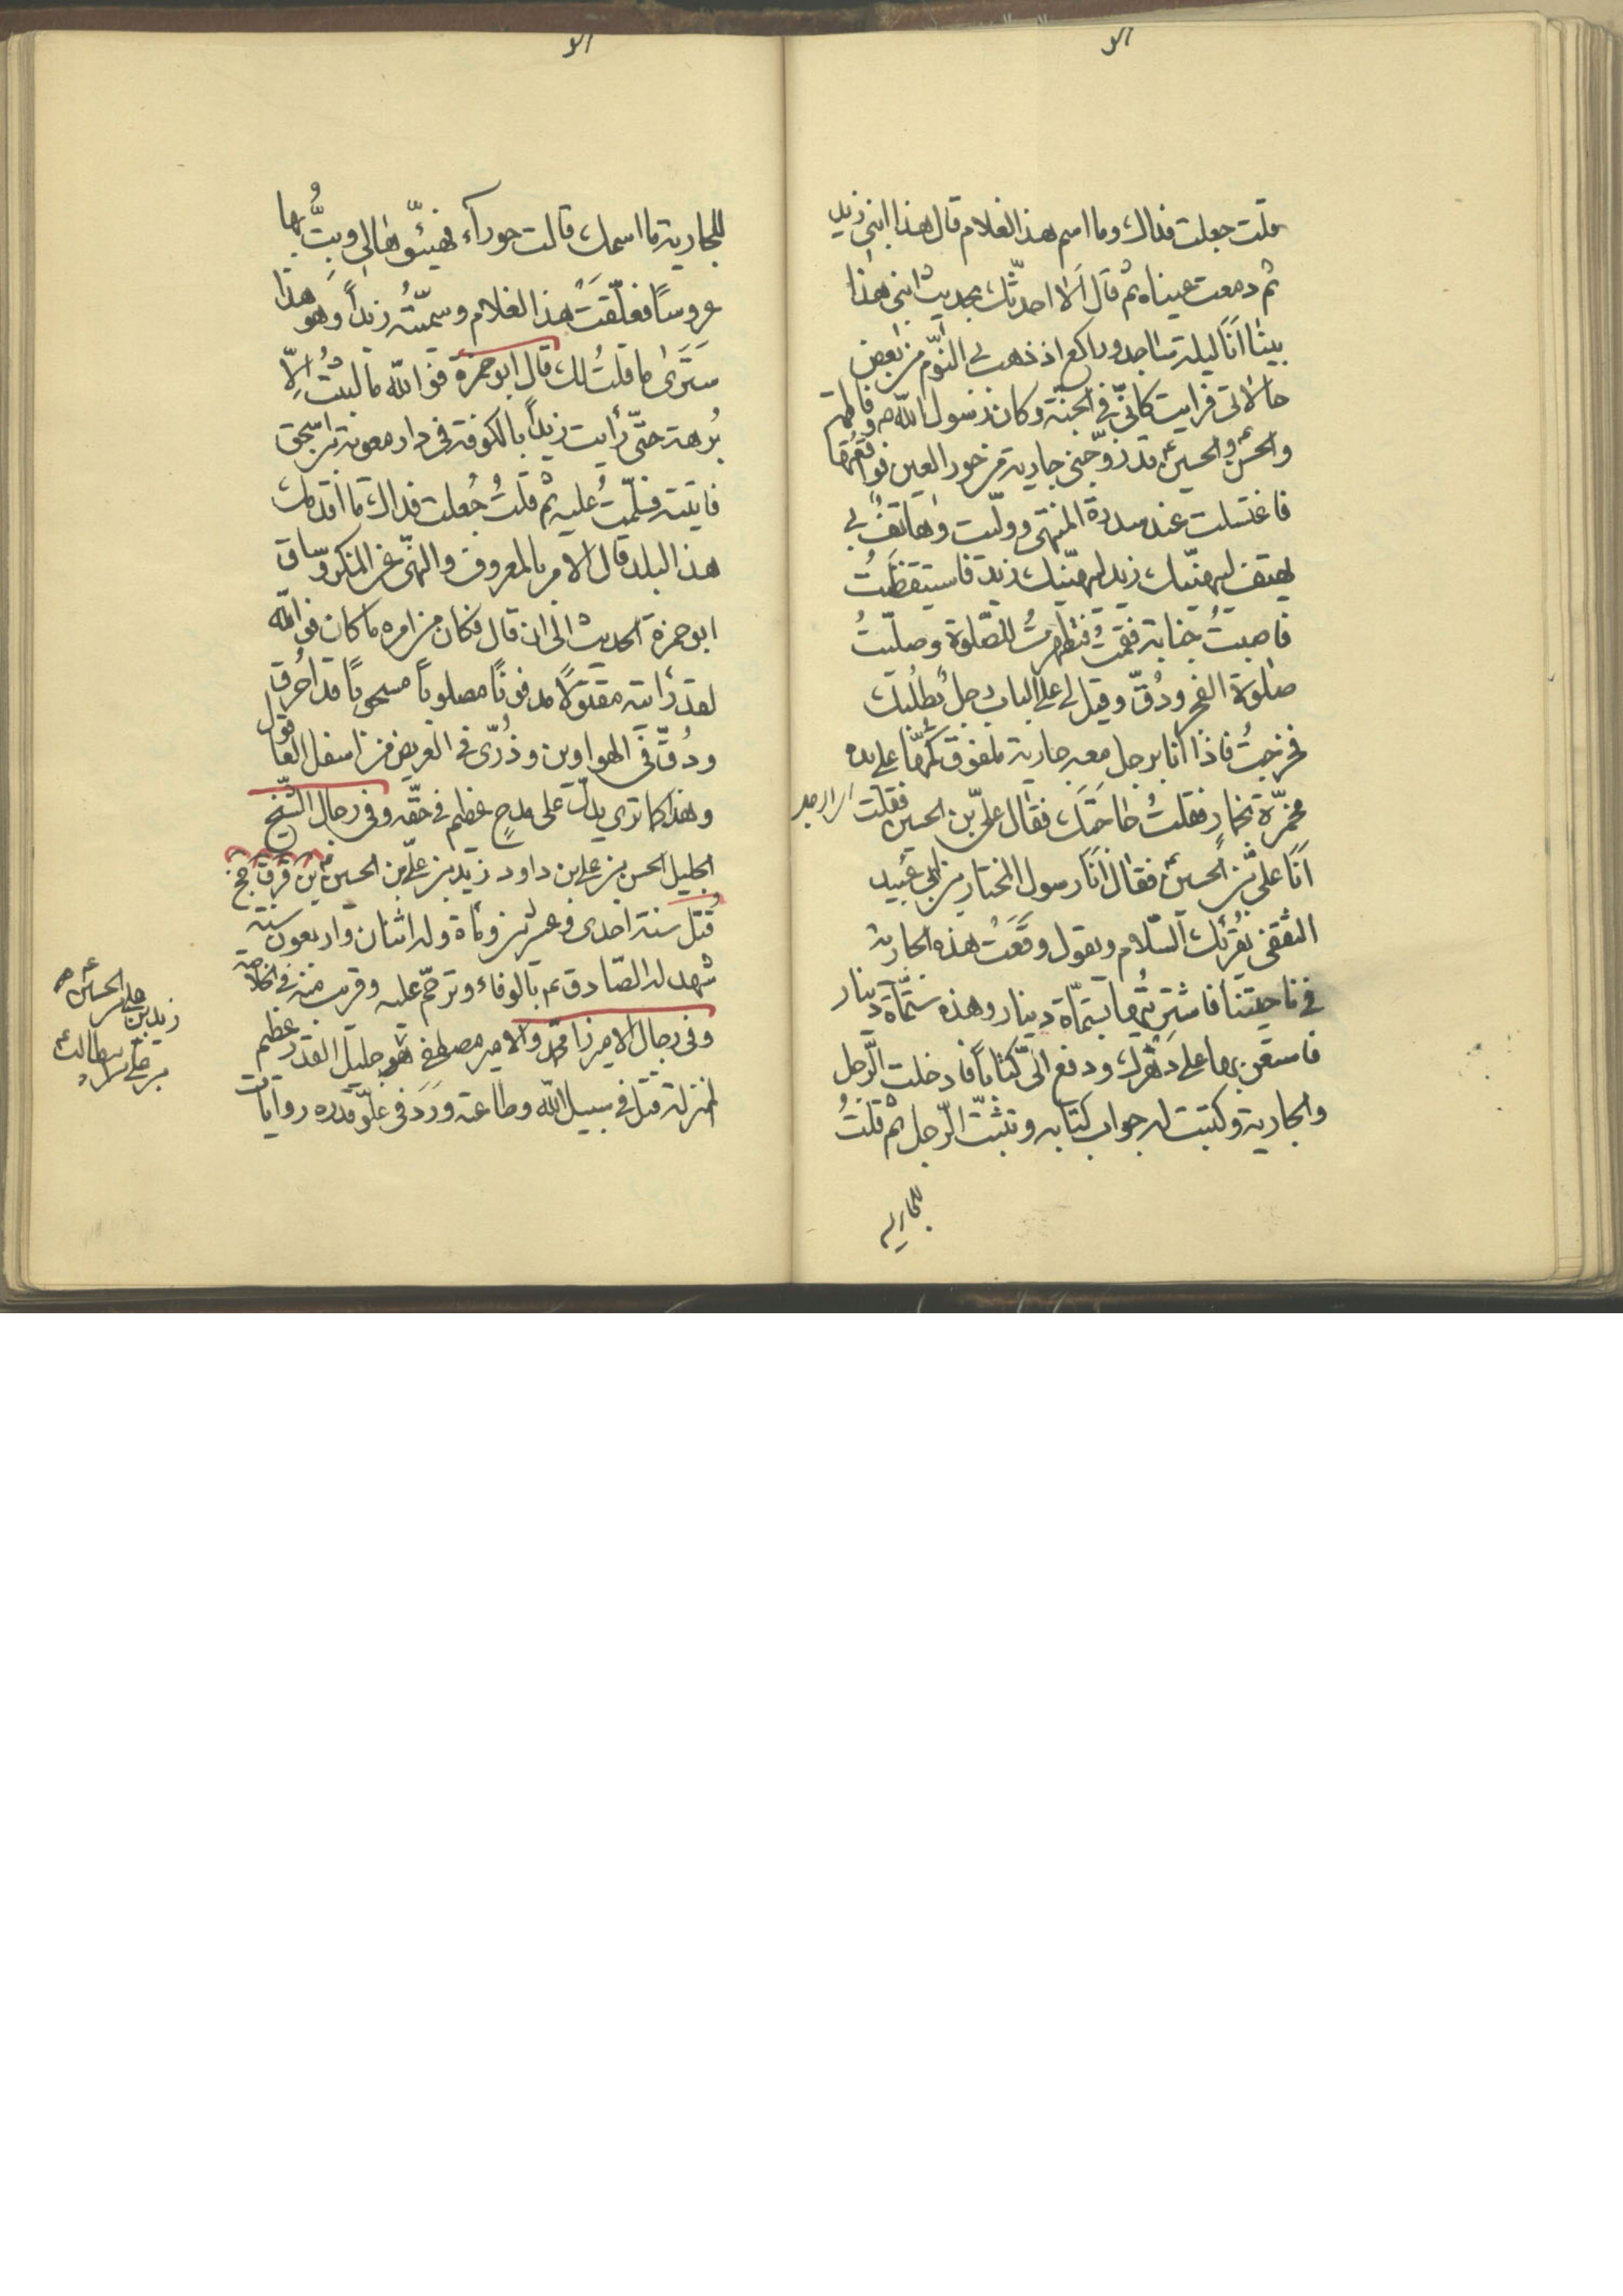 قلت جعلت فداك وما اسم هذا الغلام قال هذا ابنى زيد
ثم دمعت عيناه ثم قال الا احدّثك بحديث ابنى هذا
بينا انا ليلة ساجد وراكع اذ ذهب بى النوم من بعض
حالاتى فرايت كانّى فى الجنّة وكان رسول الله ص وفاطمة
والحسن والحسين ع قد زوّجنى جارية من حور العين فواقعتها
فاغتسلت عند سدرة المنتهى وولّيت وهاتف بى
يهتف ليهنّيك زيد ليهنّيك زيد فاستيقظت
فاصبتُ جنابة فقمتُ فتطهرتُ للصّلوة وصلّيتُ
صلوة الفجر ودُقّ وقيل لى على الباب رجل يطلبك
فخرجتُ فاذا انا برجل معه جارية ملفوف كمّها على يده
مخمرّة بخمار فقلتُ ما حاجتك فقال علىّ بن الحسين فقلت
انا علىّ بن الحسين ع فقال انا رسول المختار بن ابى عبيد
الثقفى يقرئك السّلام ويقول وقعت هذه الجارية
فى ناحيتنا فاشتريتُها بستمّاة دينار وهذه ستّماة دينار
فاستعن بها على دهرك ودفع الىّ كتابا فادخلت الرّجل
والجارية وكتبت له جواب كتابه وتثبت الرّجل ثم قلتُ
للجاريه
للجارية ما اسمك قالت حوراء فهيّئوها لى وبتُّ بها
عروسًا فعلّقت بهذا الغلام وسمّيتُه زيداً وهو هذا
سترى ما قلتُ لك قال ابو حمزة فو الله ما لبثتُ الّا
بُرهة حتّى رأيت زيداً بالكوفة فى دار معوية بن اسحق
فاتيته فسلّمتُ عليه ثم قلتُ جُعلت فداك ما اقدمك
هذا البلد قال الامر بالمعروف والنّهى عن المنكر وساق
ابو حمزة الحديث الى ان قال فكان من امره ما كان فو الله
لقد رأيته مقتولًا مدفونًا مصلوبًا مسحوبًا قد احرق
ودُقّ فى الهواوين وذُرّى فى العريض من اسفل العاقول
وهذا كما ترى يدلّ على مدحٍ عظيم فى حقّه وفى رجال الشّيخ
الجليل الحسن بن على بن داود زيد بن علىّ بن الحسين ع قر ق جخ
قُتل سنة احدى وعشرين وماة وله اثنان واربعون سنة
شهد له الصّادق ع بالوفاء وترحّم عليه وقريب منه فى الخلاصة
وفى رجال الاميرزا محمّد والامير مصطفى هو جليل القدر عظيم
المنزلة قتل فى سبيل الله وطاعته وورد فى علوّ قدره روايات
زيد بن على بن الحسين ع